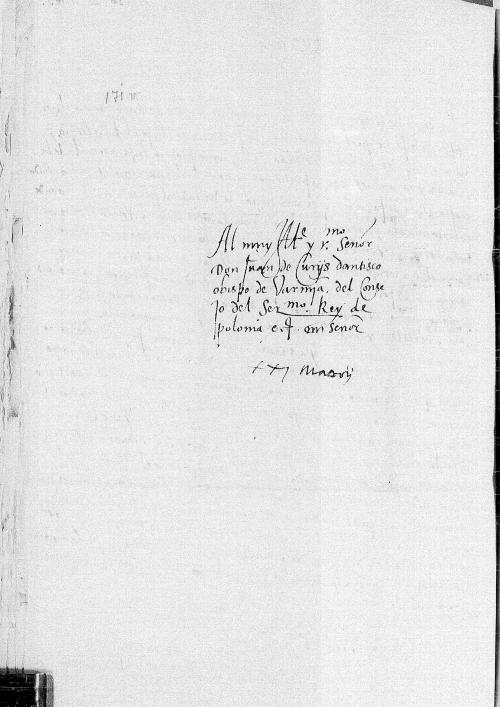 Al muy Ille y r.mo Señor
Don Juan de Curijs dantisco
obispo de Varmia. del Conse
jo del Ser.mo Rey de
polonia e.t. mi Señor
xxj